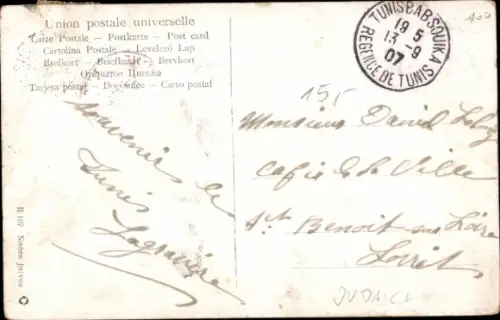 Union postale universelle
Carte Postale — Postkarte — Post card
Cartolina Postale — Levelező Lap
Brefkort — Briefkaart — Brevkort
Tarjeta postal — Dopisnice — Carto postal
souvenir de
Tunis
TUNIS BAB-SOUIKA
19 5
13-9
07
REGENCE DE TUNIS
15,-
Monsieur David
de la Ville
St Benoit sur Loire
Loiret
JUDAICA
R 107 Noces juives